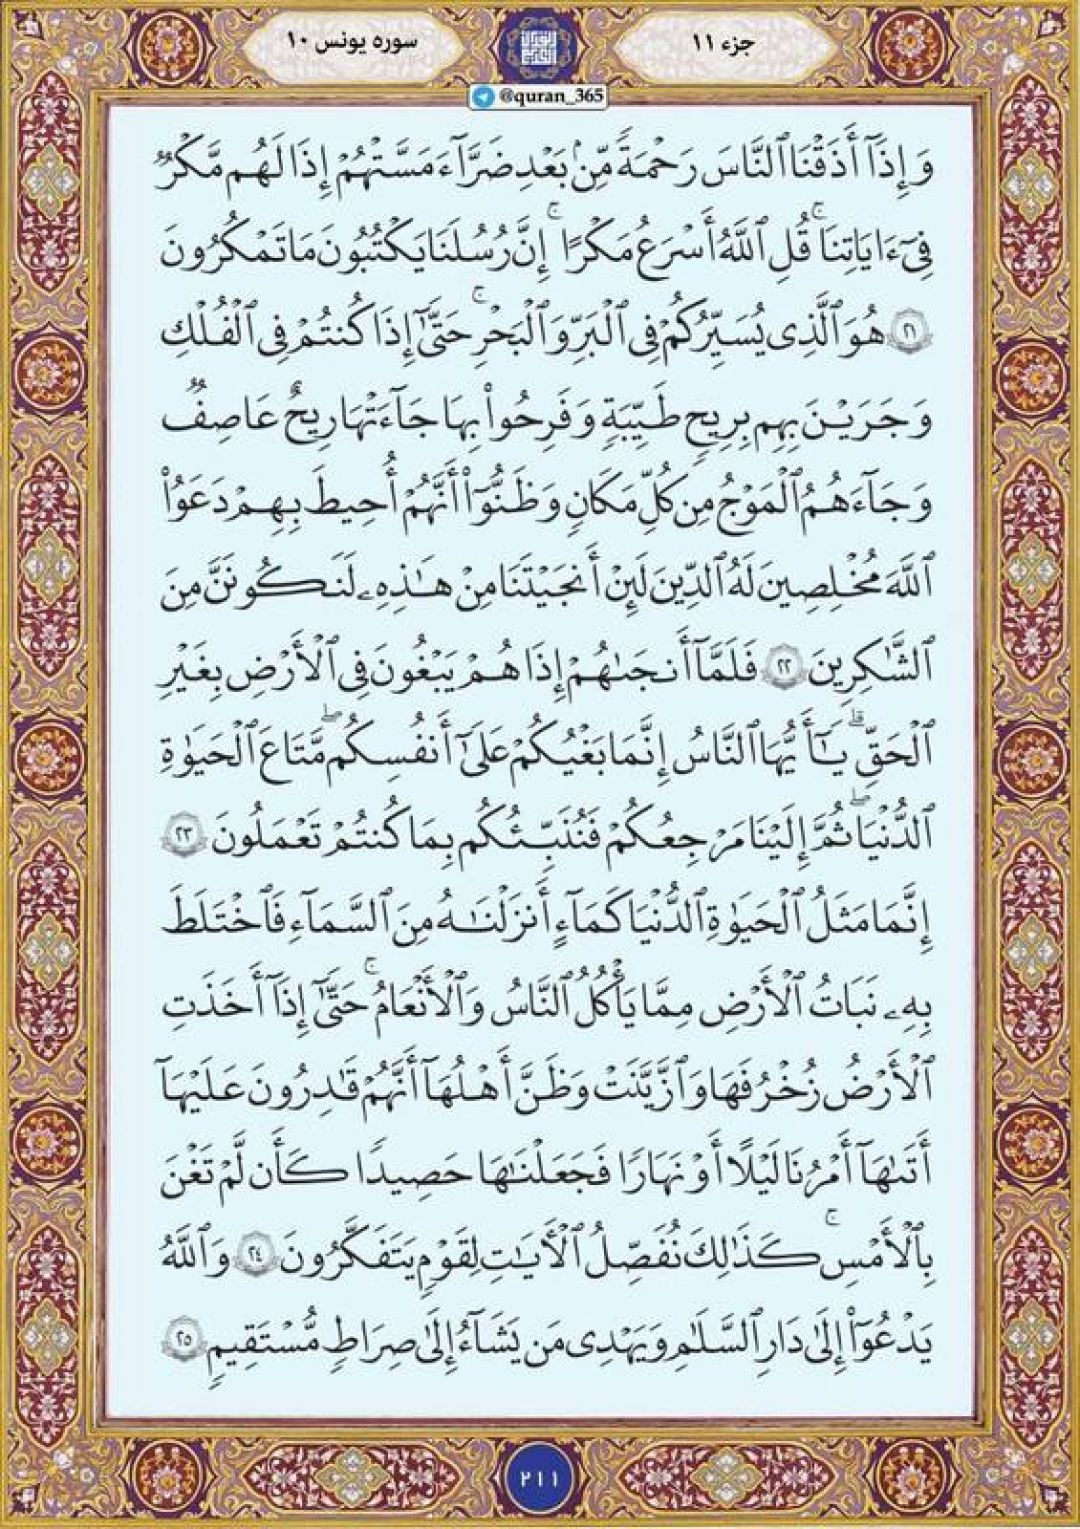 جزء ۱۱
سوره یونس ۱۰
@quran_365
وَإِذَآ أَذَقْنَا ٱلنَّاسَ رَحْمَةً مِّنۢ بَعْدِ ضَرَّآءَ مَسَّتْهُمْ إِذَا لَهُم مَّكْرٌ
فِىٓ ءَايَاتِنَا ۚ قُلِ ٱللَّهُ أَسْرَعُ مَكْرًا ۚ إِنَّ رُسُلَنَا يَكْتُبُونَ مَا تَمْكُرُونَ
۲۱ هُوَ ٱلَّذِى يُسَيِّرُكُمْ فِى ٱلْبَرِّ وَٱلْبَحْرِ ۚ حَتَّىٰٓ إِذَا كُنتُمْ فِى ٱلْفُلْكِ
وَجَرَيْنَ بِهِم بِرِيحٍ طَيِّبَةٍ وَفَرِحُوا۟ بِهَا جَآءَتْهَا رِيحٌ عَاصِفٌ
وَجَآءَهُمُ ٱلْمَوْجُ مِن كُلِّ مَكَانٍ وَظَنُّوٓا۟ أَنَّهُمْ أُحِيطَ بِهِمْ دَعَوُا۟
ٱللَّهَ مُخْلِصِينَ لَهُ ٱلدِّينَ لَئِنْ أَنجَيْتَنَا مِنْ هَـٰذِهِۦ لَنَكُونَنَّ مِنَ
ٱلشَّـٰكِرِينَ ۲۲ فَلَمَّآ أَنجَىٰهُمْ إِذَا هُمْ يَبْغُونَ فِى ٱلْأَرْضِ بِغَيْرِ
ٱلْحَقِّ ۗ يَـٰٓأَيُّهَا ٱلنَّاسُ إِنَّمَا بَغْيُكُمْ عَلَىٰٓ أَنفُسِكُم ۖ مَّتَاعَ ٱلْحَيَوٰةِ
ٱلدُّنْيَا ۖ ثُمَّ إِلَيْنَا مَرْجِعُكُمْ فَنُنَبِّئُكُم بِمَا كُنتُمْ تَعْمَلُونَ ۲۳
إِنَّمَا مَثَلُ ٱلْحَيَوٰةِ ٱلدُّنْيَا كَمَآءٍ أَنزَلْنَـٰهُ مِنَ ٱلسَّمَآءِ فَٱخْتَلَطَ
بِهِۦ نَبَاتُ ٱلْأَرْضِ مِمَّا يَأْكُلُ ٱلنَّاسُ وَٱلْأَنْعَامُ ۚ حَتَّىٰٓ إِذَآ أَخَذَتِ
ٱلْأَرْضُ زُخْرُفَهَا وَٱزَّيَّنَتْ وَظَنَّ أَهْلُهَآ أَنَّهُمْ قَـٰدِرُونَ عَلَيْهَآ
أَتَىٰهَآ أَمْرُنَا لَيْلًا أَوْ نَهَارًا فَجَعَلْنَـٰهَا حَصِيدًا كَأَن لَّمْ تَغْنَ
بِٱلْأَمْسِ ۚ كَذَٰلِكَ نُفَصِّلُ ٱلْأَيَـٰتِ لِقَوْمٍ يَتَفَكَّرُونَ ۲۴ وَٱللَّهُ
يَدْعُوٓا۟ إِلَىٰ دَارِ ٱلسَّلَـٰمِ وَيَهْدِى مَن يَشَآءُ إِلَىٰ صِرَاطٍ مُّسْتَقِيمٍ ۲۵
۲۱۱